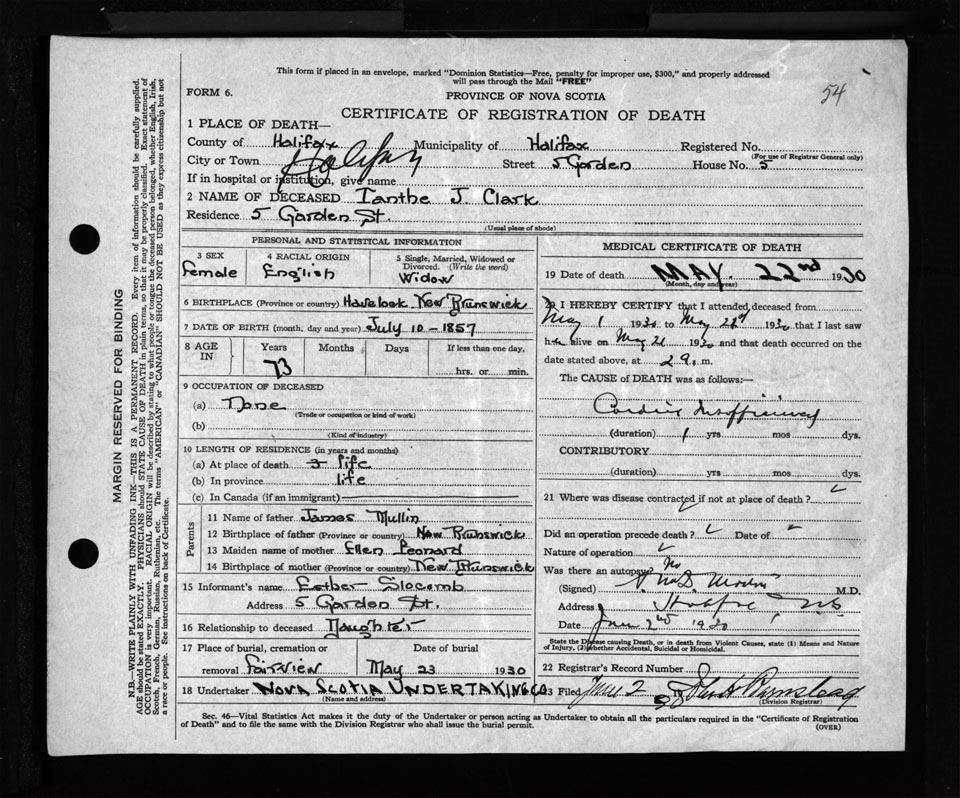 This form if placed in an envelope, marked "Dominion Statistics—Free, penalty for improper use, $300," and properly addressed
will pass through the Mail "FREE"
54
FORM 6.
PROVINCE OF NOVA SCOTIA
CERTIFICATE OF REGISTRATION OF DEATH
1 PLACE OF DEATH—
County of Halifax Municipality of Halifax Registered No.
(For use of Registrar General only)
City or Town Halifax Street 5 Garden House No. 5
If in hospital or institution, give name
2 NAME OF DECEASED Ianthe J. Clark
Residence 5 Garden St.
(Usual place of abode)
PERSONAL AND STATISTICAL INFORMATION
3 SEX 4 RACIAL ORIGIN 5 Single, Married, Widowed or
Divorced. (Write the word)
Female English Widow
6 BIRTHPLACE (Province or country) Havelock New Brunswick
7 DATE OF BIRTH (month, day and year) July 10-1857
8 AGE IN Years Months Days If less than one day,
73 hrs. or min.
9 OCCUPATION OF DECEASED
(a) None
(Trade or occupation or kind of work)
(b)
(Kind of industry)
10 LENGTH OF RESIDENCE (in years and months)
(a) At place of death 3 life
(b) In province life
(c) In Canada (if an immigrant)
Parents
11 Name of father James Mullin
12 Birthplace of father (Province or country) New Brunswick
13 Maiden name of mother Ellen Leonard
14 Birthplace of mother (Province or country) New Brunswick
15 Informant's name Esther Slocomb
Address 5 Garden St.
16 Relationship to deceased Daughter
17 Place of burial, cremation or Date of burial
removal Fairview May 23 1930
18 Undertaker NOVA SCOTIA UNDERTAKING CO
(Name and address)
MEDICAL CERTIFICATE OF DEATH
19 Date of death MAY. 22nd 1930
(Month, day and year)
20 I HEREBY CERTIFY that I attended deceased from
May 1 1930 to May 22nd 1930 that I last saw
her alive on May 21 1930 and that death occurred on the
date stated above, at 2 a. m.
The CAUSE of DEATH was as follows:—
Cardiac Insufficiency
(duration) 1 yrs mos dys.
CONTRIBUTORY
(duration) yrs mos dys.
21 Where was disease contracted if not at place of death?
Did an operation precede death? Date of
Nature of operation
Was there an autopsy? No
(Signed) M.D.
Address Halifax, N.S.
Date June 2nd 1930
State the Disease causing Death, or in death from Violent Causes, state (1) Means and Nature
of Injury, (2) whether Accidental, Suicidal or Homicidal.
22 Registrar's Record Number
23 Filed June 2 1930
(Division Registrar)
Sec. 46—Vital Statistics Act makes it the duty of the Undertaker or person acting as Undertaker to obtain all the particulars required in the "Certificate of Registration
of Death" and to file the same with the Division Registrar who shall issue the burial permit.
(OVER)
MARGIN RESERVED FOR BINDING
N.B.—WRITE PLAINLY WITH UNFADING INK—THIS IS A PERMANENT RECORD. Every item of information should be carefully supplied.
AGE should be stated EXACTLY. PHYSICIANS should STATE CAUSE OF DEATH in plain terms, so that it may be properly classified. Exact statement of
OCCUPATION is very important. RACIAL ORIGIN will be described by stating to what people or tongue the deceased person belonged, whether English, Irish,
Scotch, French, German, Russian, Ruthenian, etc. The terms "AMERICAN" or "CANADIAN" SHOULD NOT BE USED as they express citizenship but not
a race or people. See instructions on back of Certificate.